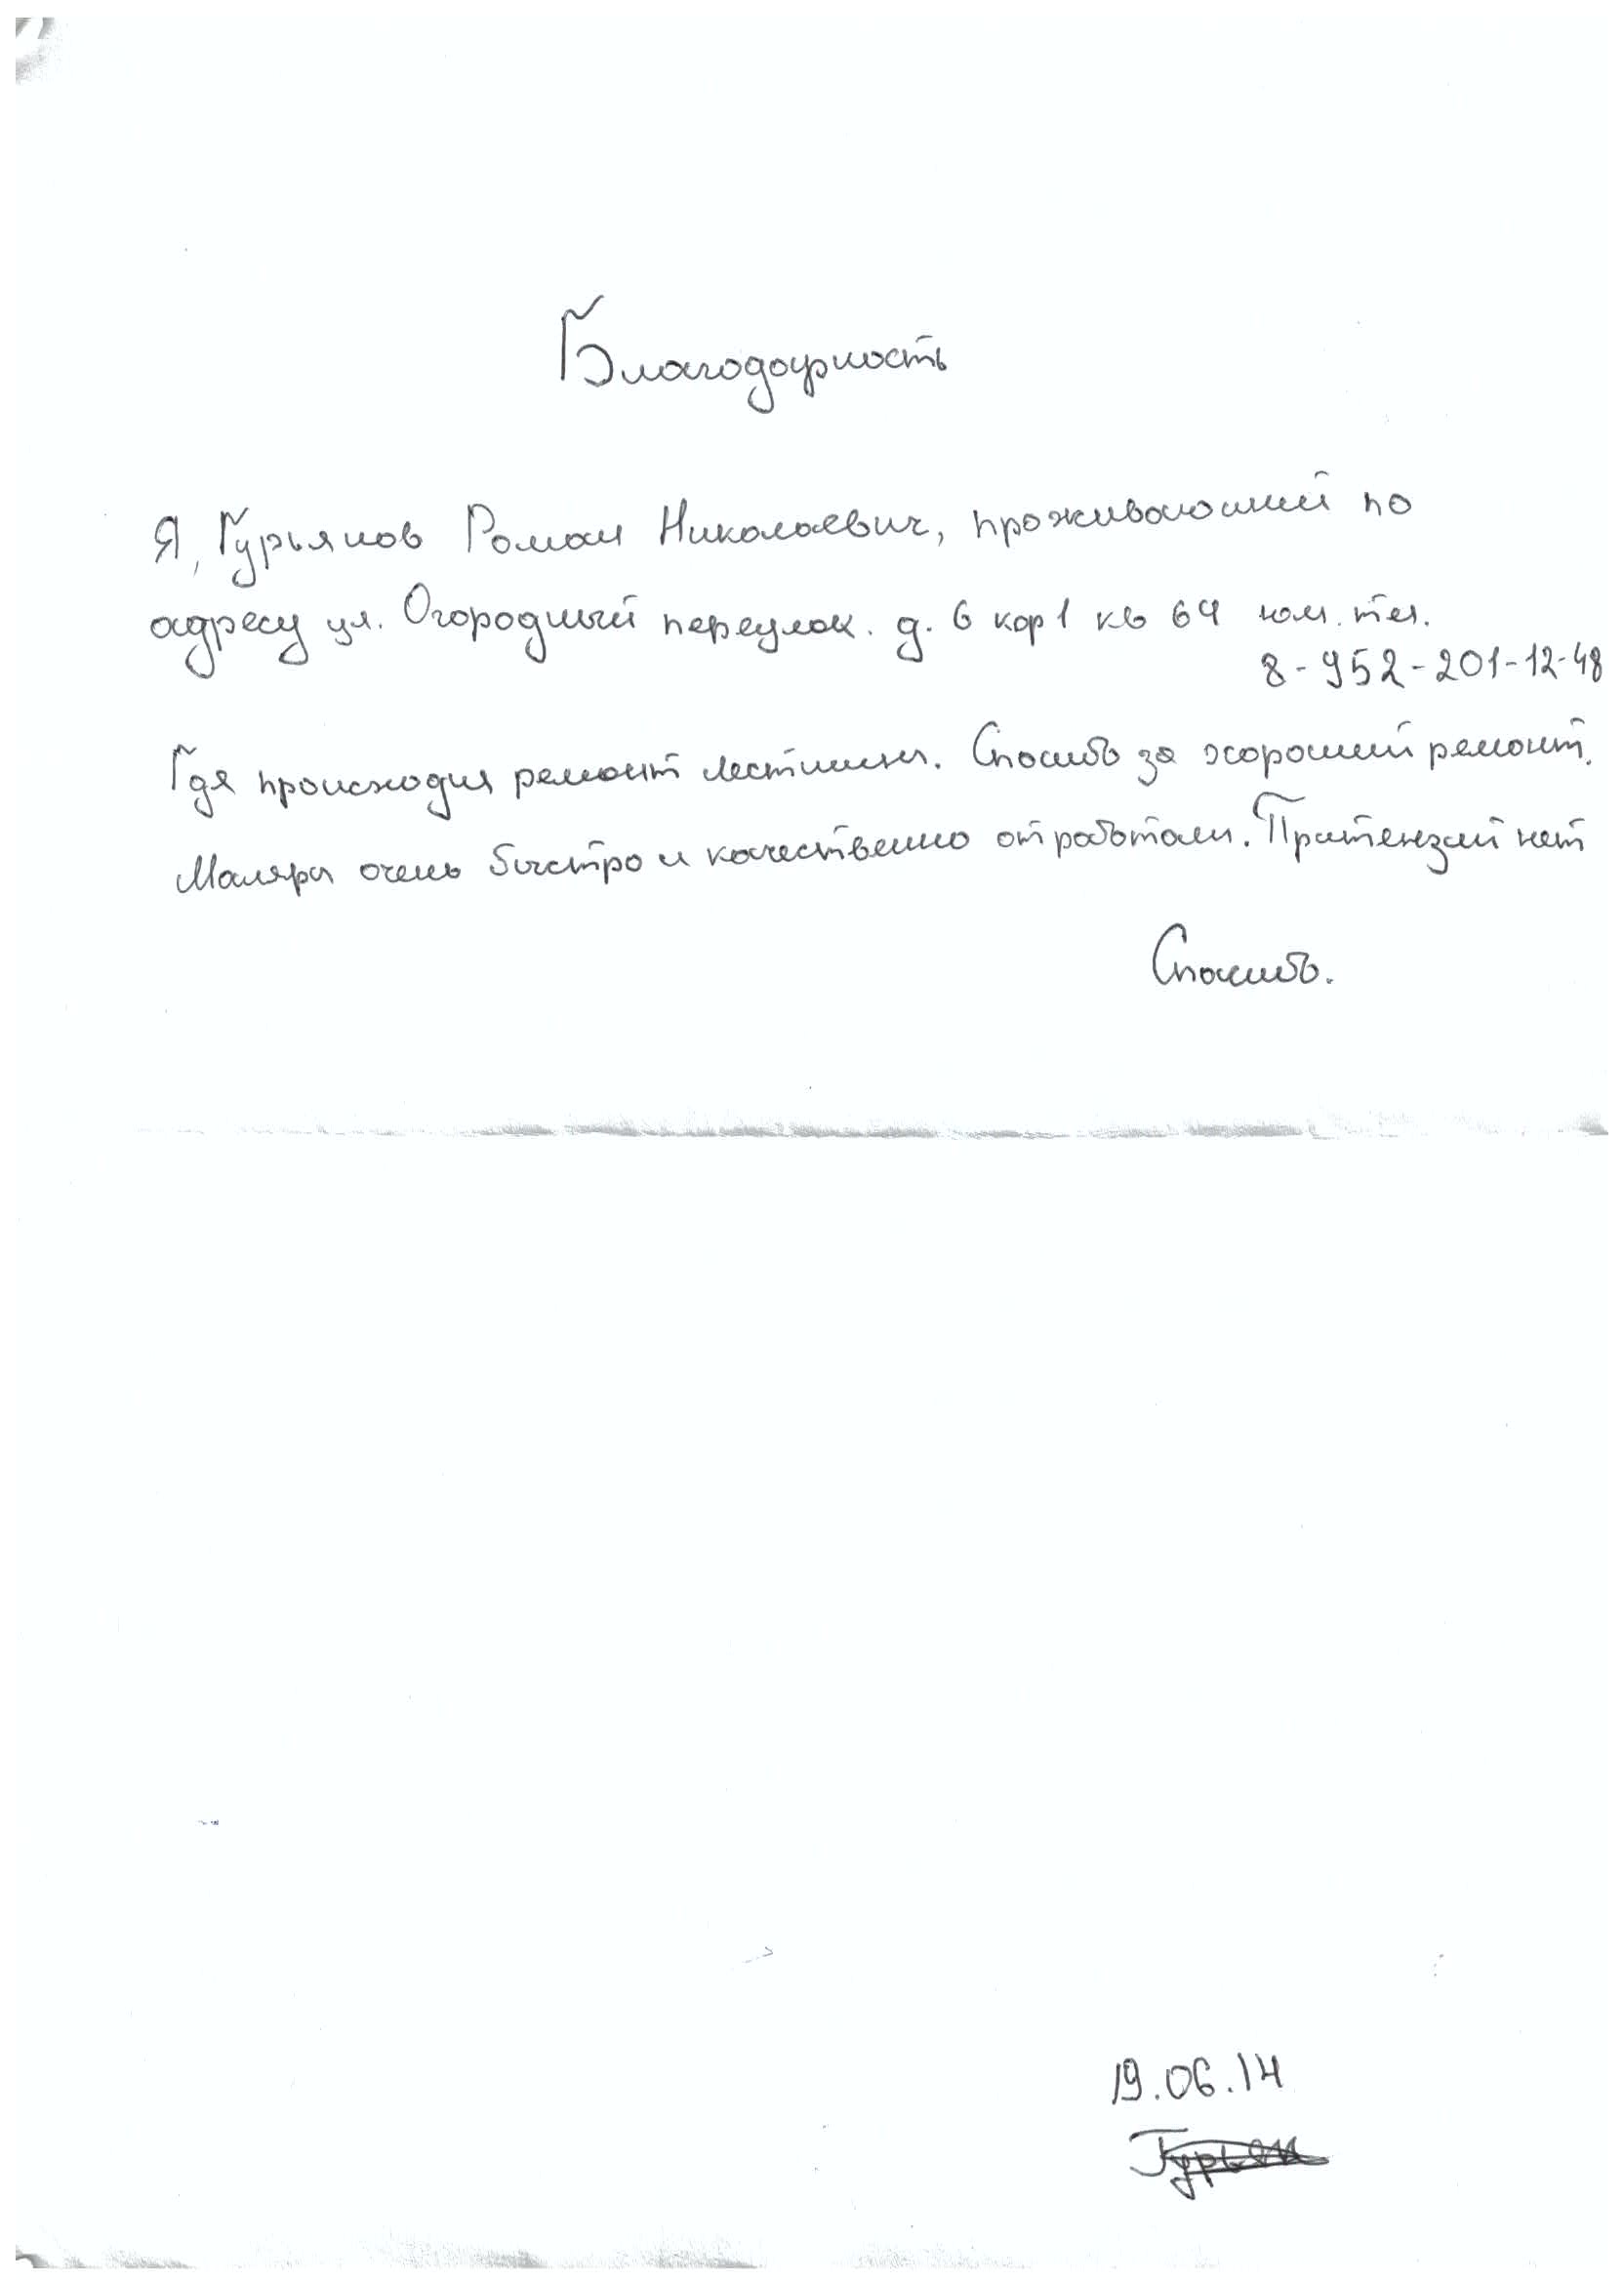 Благодарность
Я, Гурьянов Роман Николаевич, проживающий по
адресу ул. Огородный переулок. д. 6 кор 1 кв 64 тел.
8-952-201-12-48
Где происходил ремонт лестницы. Спасибо за хороший ремонт.
Маляры очень быстро и качественно отработали. Притензий нет
Спасибо.
19.06.14
Гурьян